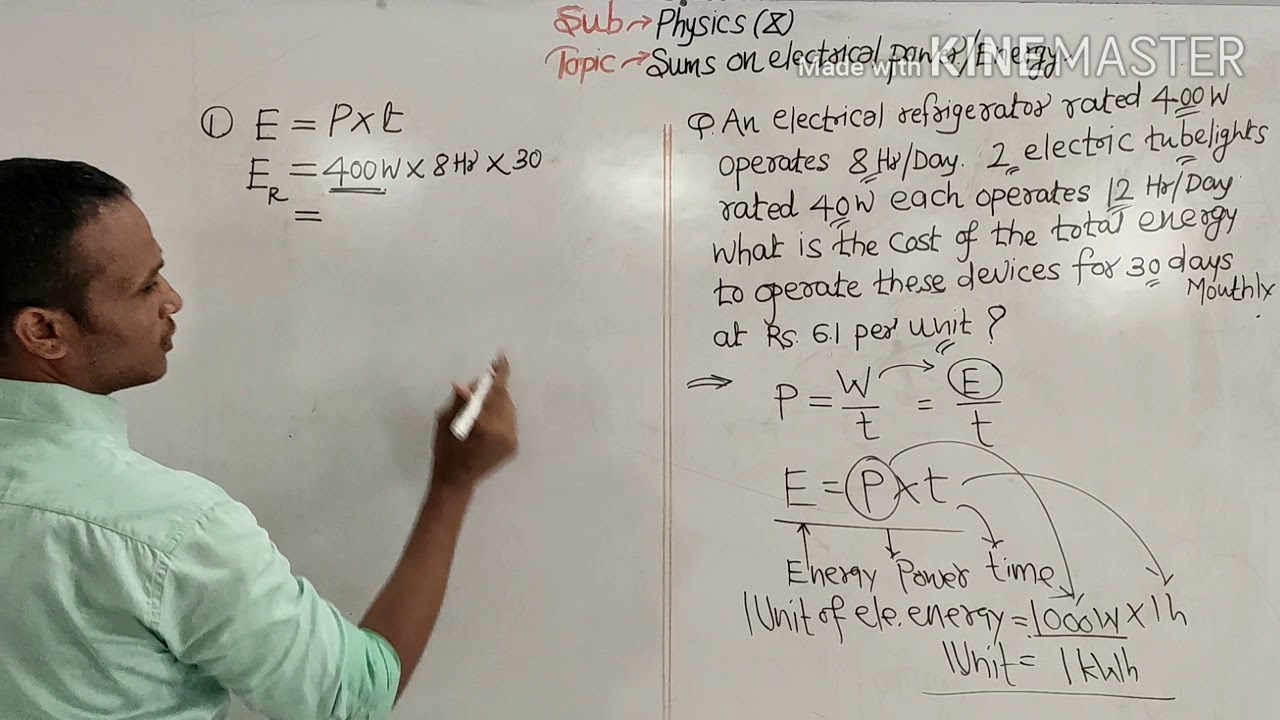 Sub→Physics (X)
Topic→Sums on electrical power/Energy
Made with KINEMASTER
① E = P×t
E_R = 400W × 8 Hr × 30
=
Q. An electrical refrigerator rated 400W
operates 8 Hr/Day. 2 electric tubelights
rated 40W each operates 12 Hr/Day
what is the cost of the total energy
to operate these devices for 30 days
Mouthly
at Rs. 6.1 per unit ?
⇒ P = W/t = E/t
E = P×t
Energy Power time
1Unit of ele. energy = 1000W × 1h
1Unit = 1kWh